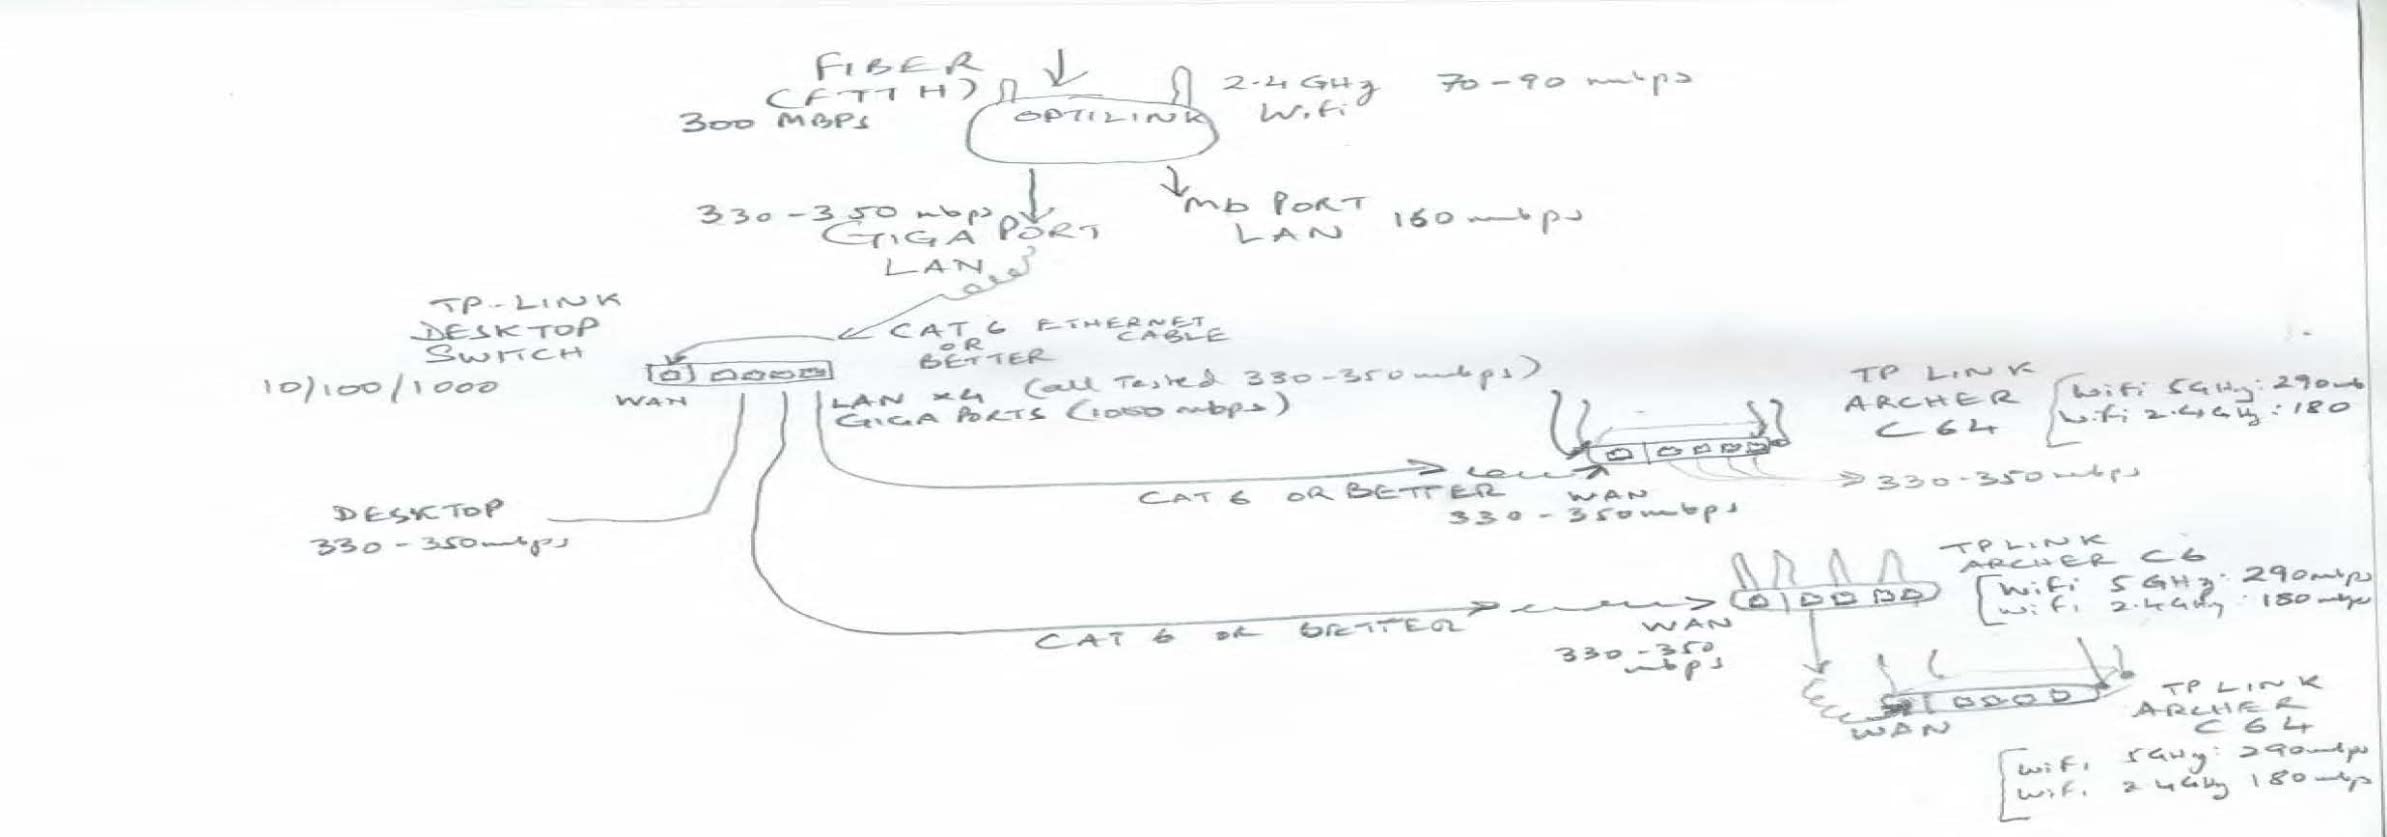 FIBER
(FTTH)
300 MBPS
OPTILINK
2.4 GHz
Wifi
70-90 mbps
330-350 mbps
GIGA PORT
LAN
Mb PORT
LAN
160 mbps
TP-LINK
DESKTOP
SWITCH
10/100/1000
CAT 6 ETHERNET
CABLE
OR
BETTER
WAN
LAN x4 (all Tested 330-350 mbps)
GIGA PORTS (1000 mbps)
DESKTOP
330-350 mbps
CAT 6 OR BETTER
WAN
330-350 mbps
TP LINK
ARCHER
C 64
Wifi 5GHz: 290mb
Wifi 2.4GHz: 180
330-350 mbps
CAT 6 OR BETTER
WAN
330-350
mbps
TP LINK
ARCHER C6
Wifi 5 GHz: 290mbps
Wifi 2.4GHz: 180 mbps
WAN
TP LINK
ARCHER
C 64
Wifi 5GHz: 290mbps
Wifi 2.4GHz 180 mbps